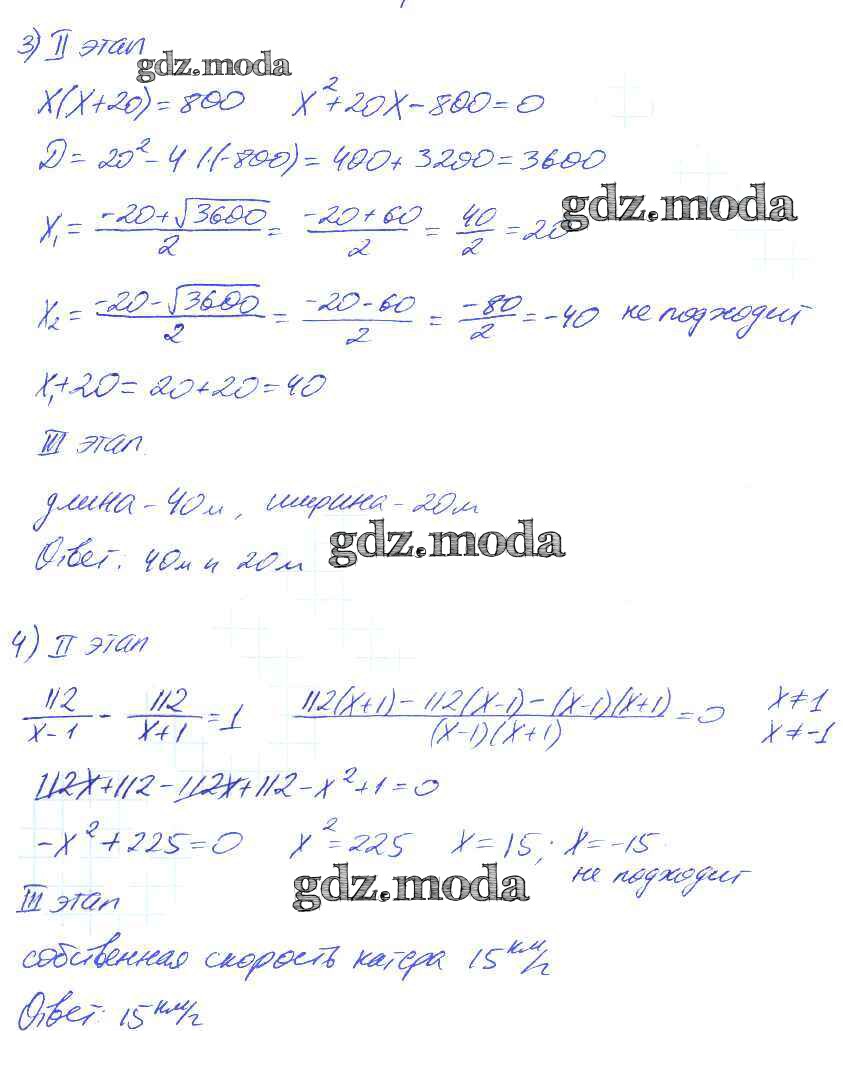 3) II этап
gdz.moda
x(x+20)=800 x²+20x-800=0
D=20²-4·1·(-800)=400+3200=3600
gdz.moda
x₁=(-20+√3600)/2=(-20+60)/2=40/2=20
x₂=(-20-√3600)/2=(-20-60)/2=-80/2=-40 не подходит
x₁+20=20+20=40
III этап.
длина-40м, ширина-20м
gdz.moda
Ответ: 40м и 20м
4) II этап
112/(x-1)-112/(x+1)=1 (112(x+1)-112(x-1)-(x-1)(x+1))/((x-1)(x+1))=0 x≠1
x≠-1
112x+112-112x+112-x²+1=0
-x²+225=0 x²=225 x=15; x=-15
не подходит
gdz.moda
III этап
собственная скорость катера 15 км/ч
Ответ: 15 км/ч